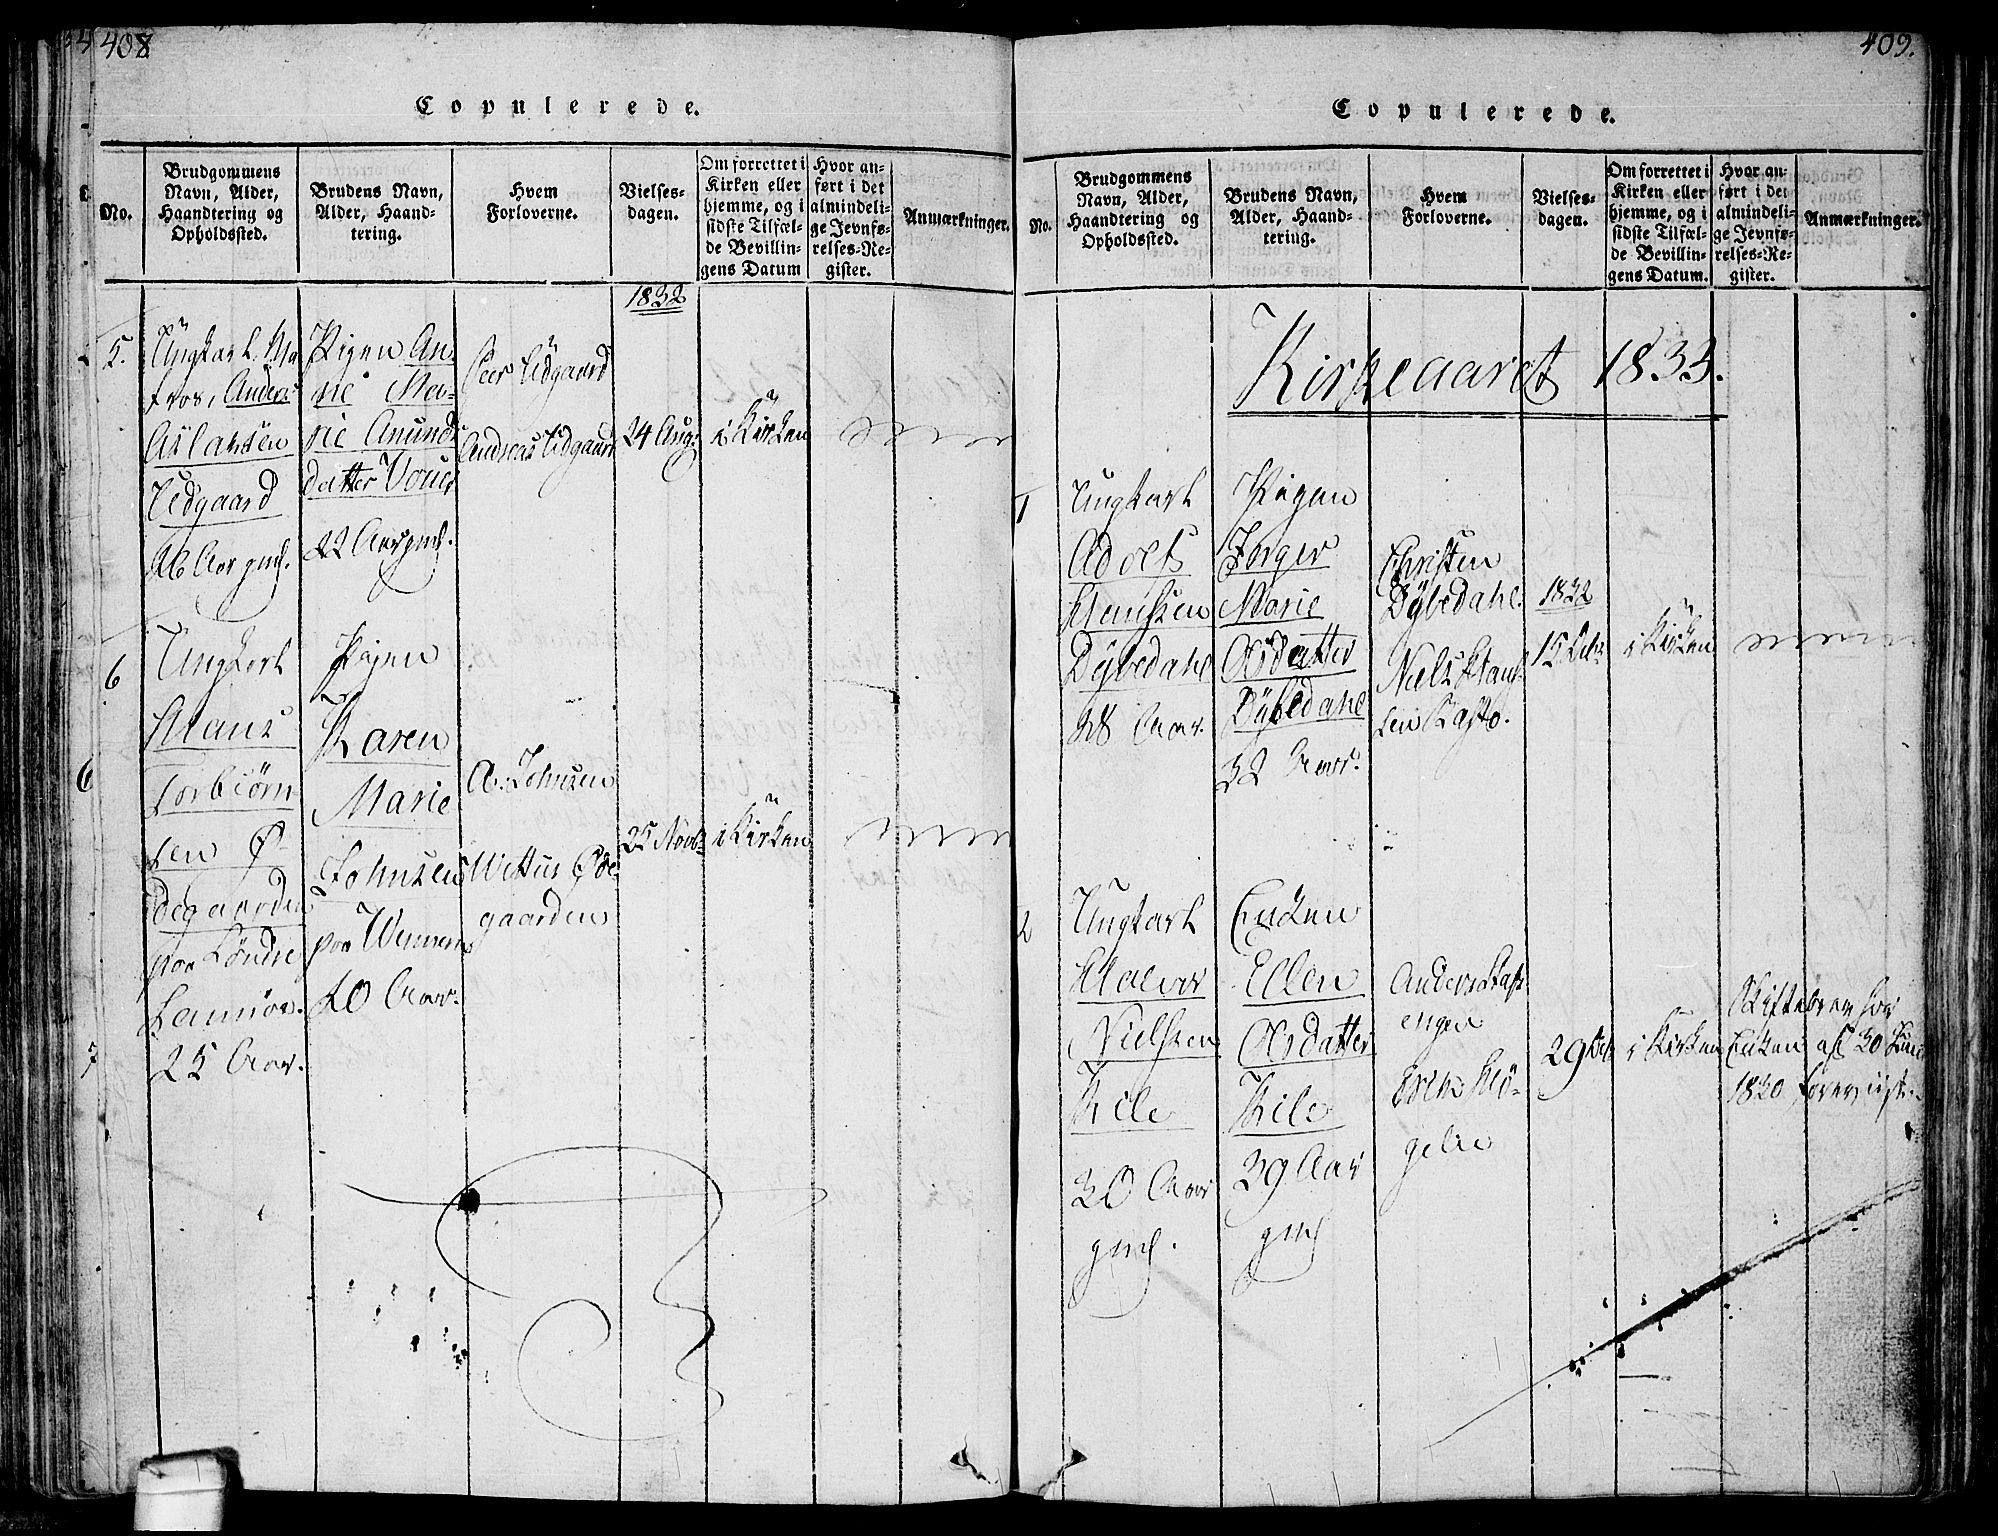 408
Copulerede.
No.
Brudgommens
Navn, Alder,
Haandtering og
Opholdssted.
Brudens Navn,
Alder, Haand-
tering.
Hvem
Forloverne.
Vielses-
dagen.
Om forrettet i
Kirken eller
hjemme, og i
sidste Tilfæl-
de Bevillin-
gens Datum
Hvor an-
ført i det
almindeli-
ge Jevnfø-
relses-Re-
gister.
Anmærkninger.
1832
5.
Ungkarl. Ma
tros, Anders
Aslaksen
Udgaard
26 Aar gml.
Pigen An-
ne Ma-
rie Anunds
datter
22 Aar gml.
Peer Udgaard
Andreas Udgaard
24 Aug:
i Kirken
6
Ungkarl
Hans
Torbiörn
sen Ø-
degaarden
paa Söndre
25 Aar.
Pigen
Karen
Marie
Johnsen
paa
20 Aar.
A: Johnsen
Wittus Øde-
gaarden
25 Novbr
i Kirken
6
7
409.
Copulerede.
No.
Brudgommens
Navn, Alder,
Haandtering og
Opholdssted.
Brudens Navn,
Alder, Haand-
tering.
Hvem
Forloverne.
Vielses-
dagen.
Om forrettet i
Kirken eller
hjemme, og i
sidste Tilfæl-
de Bevillin-
gens Datum.
Hvor an-
ført i det
almindeli-
ge Jevnfø-
relses-Re-
gister.
Anmærkninger.
Kirkeaaret 1833.
1
Ungkarl
Adolf
Hansen
Dybedahl
28 Aar.
Pigen
Inger
Marie
Olsdatter
Dybedahl
32 Aar.
Christen
Dybedahl.
Niels Han
sen
1832
15 Dcbr
i Kirken
2
Ungkarl
Halvor
Nielsen
Kile
30 Aar
gml.
Enken
Ellen
Olsdatter
Kile
39 Aar
gml
Anders
engen
29 Dcbr
i Kirken
Skiftebrev for
Enken af 30 Juni
1830 foreviist.